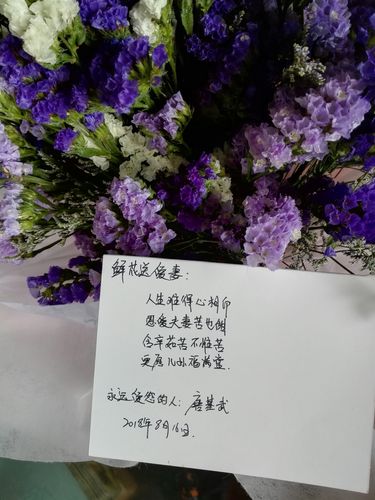 鲜花送爱妻：
人生难得心相印
恩爱夫妻苦也甜
含辛茹苦不觉苦
更喜儿孙福满堂.
永远爱您的人：唐基武
2018年8月16日.